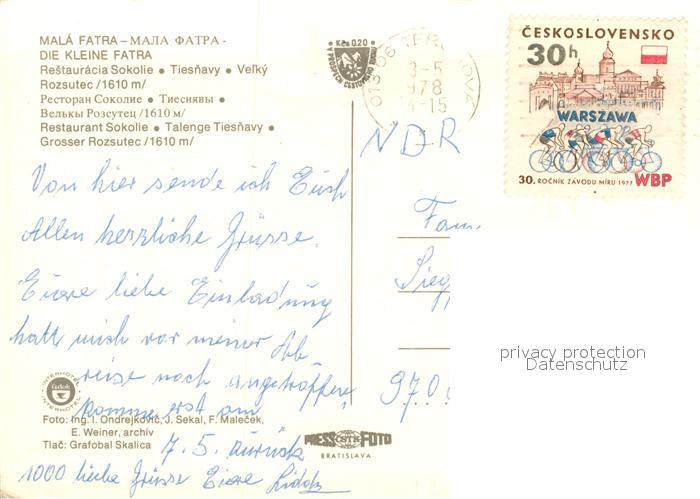 MALÁ FATRA – МАЛА ФАТРА -
DIE KLEINE FATRA
Reštaurácia Sokolie • Tiesňavy • Veľký
Rozsutec /1610 m/
Ресторан Соколие • Тиеснявы •
Велькы Розсутец /1610 м/
Restaurant Sokolie • Talenge Tiesňavy •
Grosser Rozsutec /1610 m/
Kčs 0,20
013 06 TER
3-5
978
4-15
ČESKOSLOVENSKO
30h
WARSZAWA
30. ROČNÍK ZÁVODU MÍRU 1977 WBP
NDR
Von hier sende ich Euch
Allen herzliche Grüsse.
Euere liebe Einladung
hatt mich vor meiner Ab-
reise noch angetroffen,
komme erst am
7.5. zurück
1000 liebe Grüsse Euere
Fam.
Sieg
970
privacy protection
Datenschutz
INTERHOTEL
Čedok
INTERHOTEL
Foto: Ing. I. Ondrejkovič, J. Sekal, F. Maleček,
E. Weiner, archív
Tlač: Grafobal Skalica
PRESSFOTO
ČSTK
BRATISLAVA